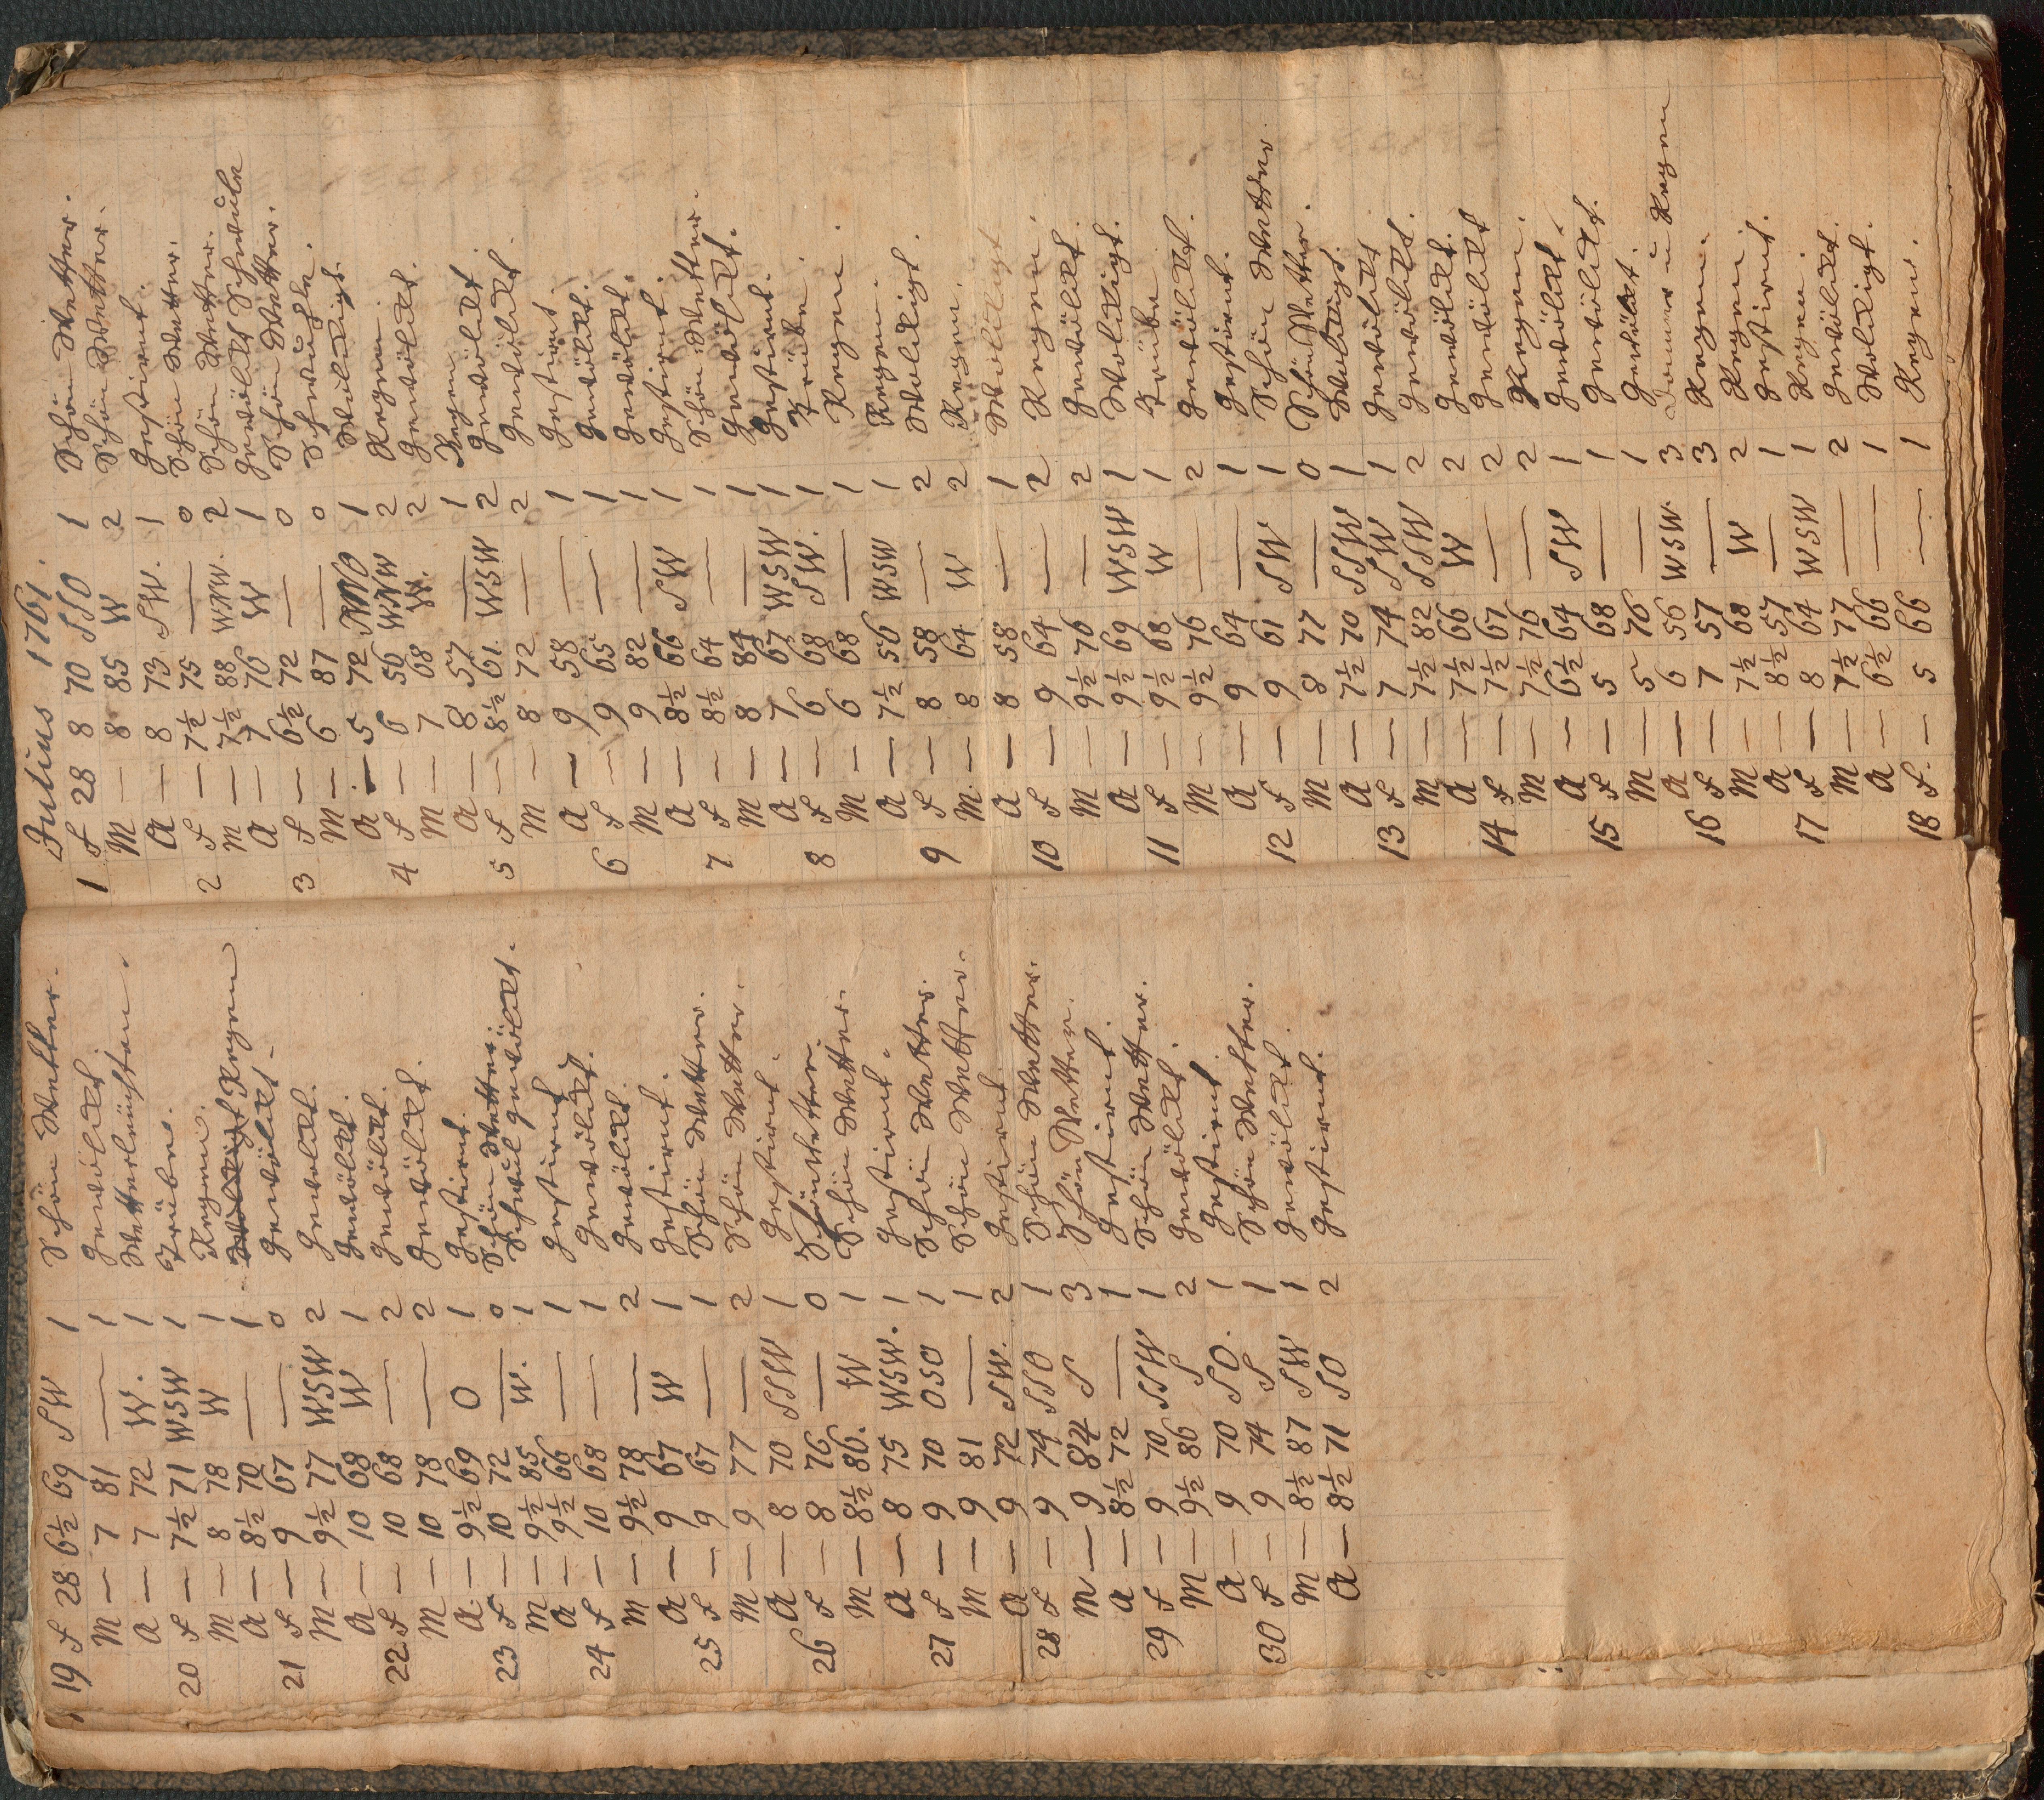 19 F 28 6½ 69 SW 1 Schön Wetter.
M — 7 81 — 1 Gewölckt.
A — 7 72 W. 1 Wetterleuchten.
20 F — 7½ 71 WSW 1 Trübe.
M — 8 78 W 1 Regen.
A — 8½ 70 — 1 Regen
21 F — 9 67 — 0 Gewölckt.
M — 9½ 77 WSW 2 Gewolckt.
A — 10 68 W 1 Gewölckt.
22 F — 10 68 — 2 Gewölckt.
M — 10 78 — 2 Gewölckt.
A — 9½ 69 O 1 Gestirnt.
23 F — 10 72 — 0 Schön Wetter.
M — 9½ 85 W. 1 Schwul gewölckt.
A — 9½ 66 — 1 Gestirnt
24 F — 10 68 — 1 Gewölckt.
M — 9½ 78 — 2 Gewölckt.
A — 9 67 W 1 Gestirnt.
25 F — 9 67 — 1 Schön Wetter.
M — 9 77 — 2 Schön Wetter.
A — 8 70 SSW 1 Gestirnt.
26 F — 8 76 — 0 Schön Wetter.
M — 8½ 86. W 1 Schön Wetter.
A — 8 75 WSW. 1 Gestirnt.
27 F — 9 70 OSO 1 Schön Wetter.
M — 9 81 — 1 Schön Wetter.
A — 9 72 SW. 2 Gestirnt.
28 F — 9 74 SSO 1 Schön Wetter.
M — 9 84 S 3 Schön Wetter.
A — 8½ 72 — 1 Gestirnt.
29 F — 9 70 SSW 1 Schön Wetter.
M — 9½ 86 S 2 Gewölckt.
A — 9 70 SO. 1 Gestirnt
30 F — 9 74 S 1 Schön Wetter.
M — 8½ 87 SW 1 Gewölckt.
A — 8½ 71 SO 2 Gestirnt.
Julius 1761.
1 F 28 8 70 SSO 1 Schön Wetter.
M — 8 85 W 2 Schön Wetter.
A — 8 73 SW. 1 Gestirnt.
2 F — 7½ 75 — 0 Schön Wetter.
M — 7½ 88 WNW. 2 Schön Wetter.
A — 7 76 W 1 Gewölckt Schwule
3 F — 6½ 72 — 0 Schön Wetter.
M — 6 87 — 0 Schwuhle.
A — 5 72 NNO 1 Wolckigt.
4 F — 6 56 WNW 2 Regen
M — 7 68 W. 2 Gewölckt.
A — 8 57 — 1 Regen
5 F — 8½ 61 WSW 2 Gewölckt.
M — 8 72 — 2 Gewölckt.
A — 9 58 — 1 Gestirnt.
6 F — 9 65 — 1 Gewölckt.
M — 9 82 — 1 Gewölckt.
A — 8½ 66 SW 1 Gestirnt.
7 F — 8½ 64 — 1 Schön Wetter.
M — 8 84 — 1 Gewölckt.
A — 7 67 WSW 1 Gestirnt.
8 F — 6 68 SW. 1 Trübe.
M — 6 68 — 1 Regen.
A — 7½ 56 WSW 1 Regen.
9 F — 8 58 — 2 Wolckigt.
M — 8 64 W 2 Regen.
A — 8 58 — 1 Wolckigt
10 F — 9 64 — 2 Regen.
M — 9½ 76 — 2 Gewölckt.
A — 9½ 69 WSW 1 Wolckigt.
11 F — 9½ 68 W 1 Trübe
M — 9½ 76 — 2 Gewölckt.
A — 9 64 — 1 Gestirnt.
12 F — 9 61 SW 1 Schön Wetter.
M — 8 77 — 0 Schön Wetter.
A — 7½ 70 SSW 1 Wolckigt.
13 F — 7 74 SW 1 Gewölckt
M — 7½ 82 SSW 2 Gewölckt.
A — 7½ 66 W 2 Gewölckt.
14 F — 7½ 67 — 2 Gewölckt
M — 7½ 76 — 2 Regen.
A — 6½ 64 SW 1 Gewölckt.
15 F — 5 68 — 1 Gewölckt.
M — 5 76 — 1 Gewölkt.
A — 6 56 WSW. 3 Donner u Regen
16 F — 7 57 — 3 Regen.
M — 7½ 68 W 2 Regen
A — 8½ 57 — 1 Gestirnt.
17 F — 8 64 WSW 1 Regen.
M — 7½ 77 — 2 Gewölckt.
A — 6½ 66 — 1 Wolckigt.
18 F. — 5 66 — 1 Regen.